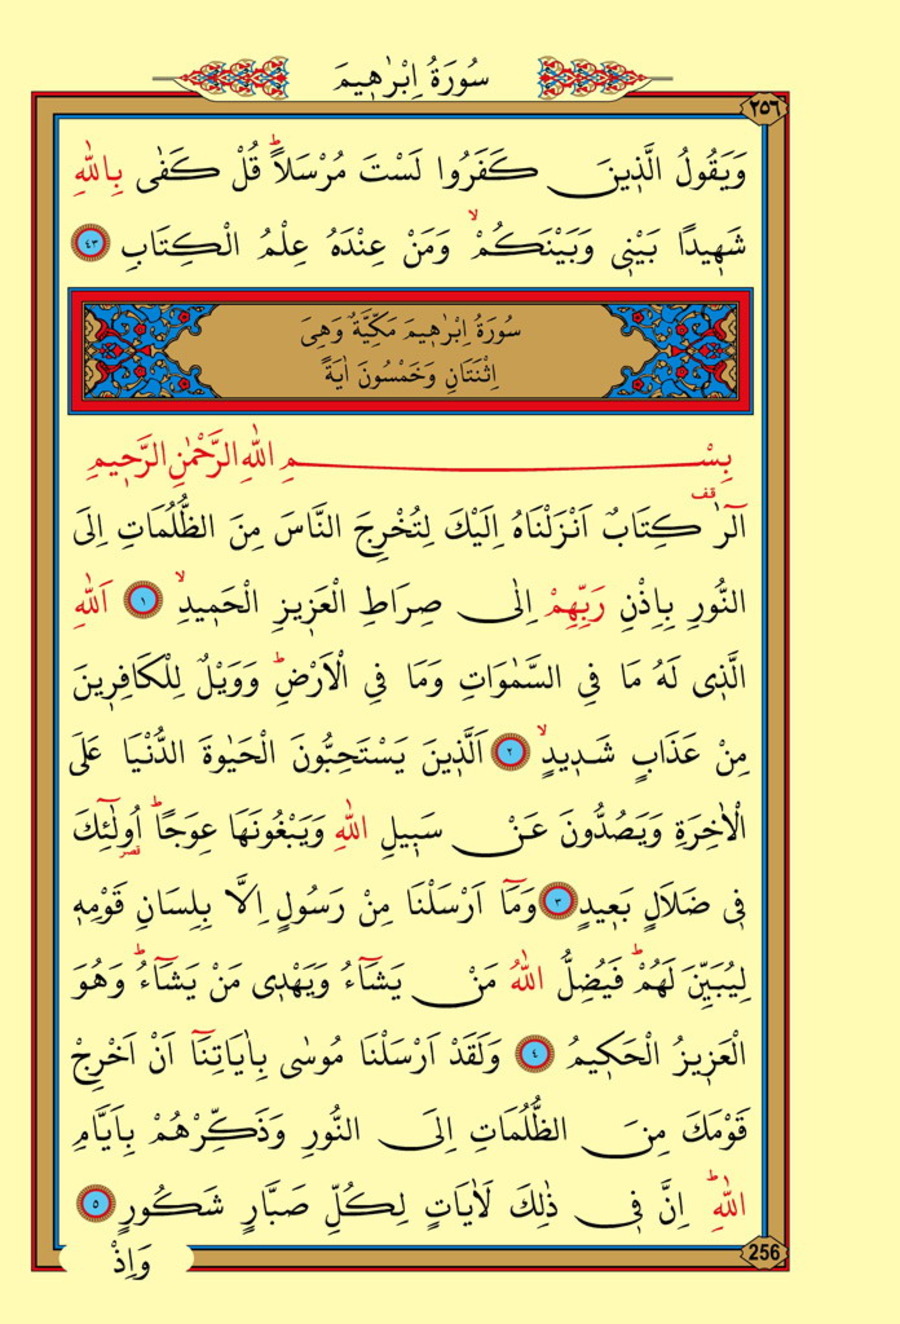 سُورَةُ اِبْرٰه۪يمَ
٢٥٦
وَيَقُولُ الَّذ۪ينَ كَفَرُوا لَسْتَ مُرْسَلاًۜ قُلْ كَفٰى بِاللّٰهِ
شَه۪يدًا بَيْن۪ي وَبَيْنَكُمْۙ وَمَنْ عِنْدَهُ عِلْمُ الْكِتَابِ ﴿٤٣﴾
سُورَةُ اِبْرٰه۪يمَ مَكِّيَّةٌ وَهِيَ
اِثْنَتَانِ وَخَمْسُونَ اٰيَةً
بِسْمِ اللّٰهِ الرَّحْمٰنِ الرَّح۪يمِ
الٓرٰ۠ كِتَابٌ اَنْزَلْنَاهُ اِلَيْكَ لِتُخْرِجَ النَّاسَ مِنَ الظُّلُمَاتِ اِلَى
النُّورِ بِاِذْنِ رَبِّهِمْ اِلٰى صِرَاطِ الْعَز۪يزِ الْحَم۪يدِۙ ﴿١﴾ اَللّٰهِ
الَّذ۪ي لَهُ مَا فِي السَّمٰوَاتِ وَمَا فِي الْاَرْضِۜ وَوَيْلٌ لِلْكَافِر۪ينَ
مِنْ عَذَابٍ شَد۪يدٍۙ ﴿٢﴾ اَلَّذ۪ينَ يَسْتَحِبُّونَ الْحَيٰوةَ الدُّنْيَا عَلَى
الْاٰخِرَةِ وَيَصُدُّونَ عَنْ سَب۪يلِ اللّٰهِ وَيَبْغُونَهَا عِوَجًاۜ اُو۬لٰٓئِكَ
ف۪ي ضَلَالٍ بَع۪يدٍ ﴿٣﴾ وَمَٓا اَرْسَلْنَا مِنْ رَسُولٍ اِلَّا بِلِسَانِ قَوْمِه۪
لِيُبَيِّنَ لَهُمْۜ فَيُضِلُّ اللّٰهُ مَنْ يَشَٓاءُ وَيَهْد۪ي مَنْ يَشَٓاءُۜ وَهُوَ
الْعَز۪يزُ الْحَك۪يمُ ﴿٤﴾ وَلَقَدْ اَرْسَلْنَا مُوسٰى بِاٰيَاتِنَٓا اَنْ اَخْرِجْ
قَوْمَكَ مِنَ الظُّلُمَاتِ اِلَى النُّورِ وَذَكِّرْهُمْ بِاَيَّامِ
اللّٰهِۜ اِنَّ ف۪ي ذٰلِكَ لَاٰيَاتٍ لِكُلِّ صَبَّارٍ شَكُورٍ ﴿٥﴾
256
وَاِذْ